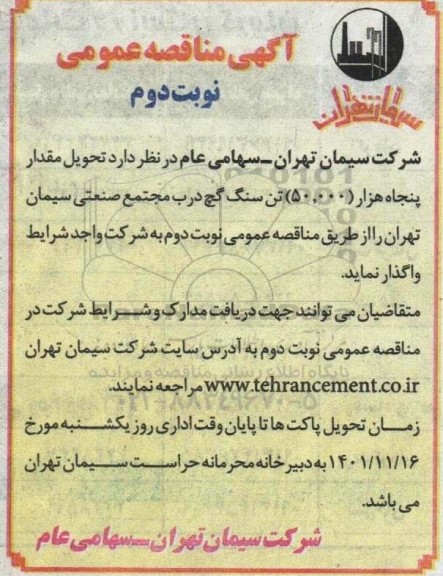 آگهی مناقصه عمومی
نوبت دوم
سیمان تهران
شرکت سیمان تهران ـ سهامی عام در نظر دارد تحویل مقدار
پنجاه هزار (۵۰.۰۰۰) تن سنگ گچ درب مجتمع صنعتی سیمان
تهران را از طریق مناقصه عمومی نوبت دوم به شرکت واجد شرایط
واگذار نماید.
متقاضیان می توانند جهت دریافت مدارک و شرایط شرکت در
مناقصه عمومی نوبت دوم به آدرس سایت شرکت سیمان تهران
www.tehrancement.co.ir مراجعه نمایند.
زمان تحویل پاکت ها تا پایان وقت اداری روز یکشنبه مورخ
۱۴۰۱/۱۱/۱۶ به دبیرخانه محرمانه حراست سیمان تهران
می باشد.
شرکت سیمان تهران ـ سهامی عام